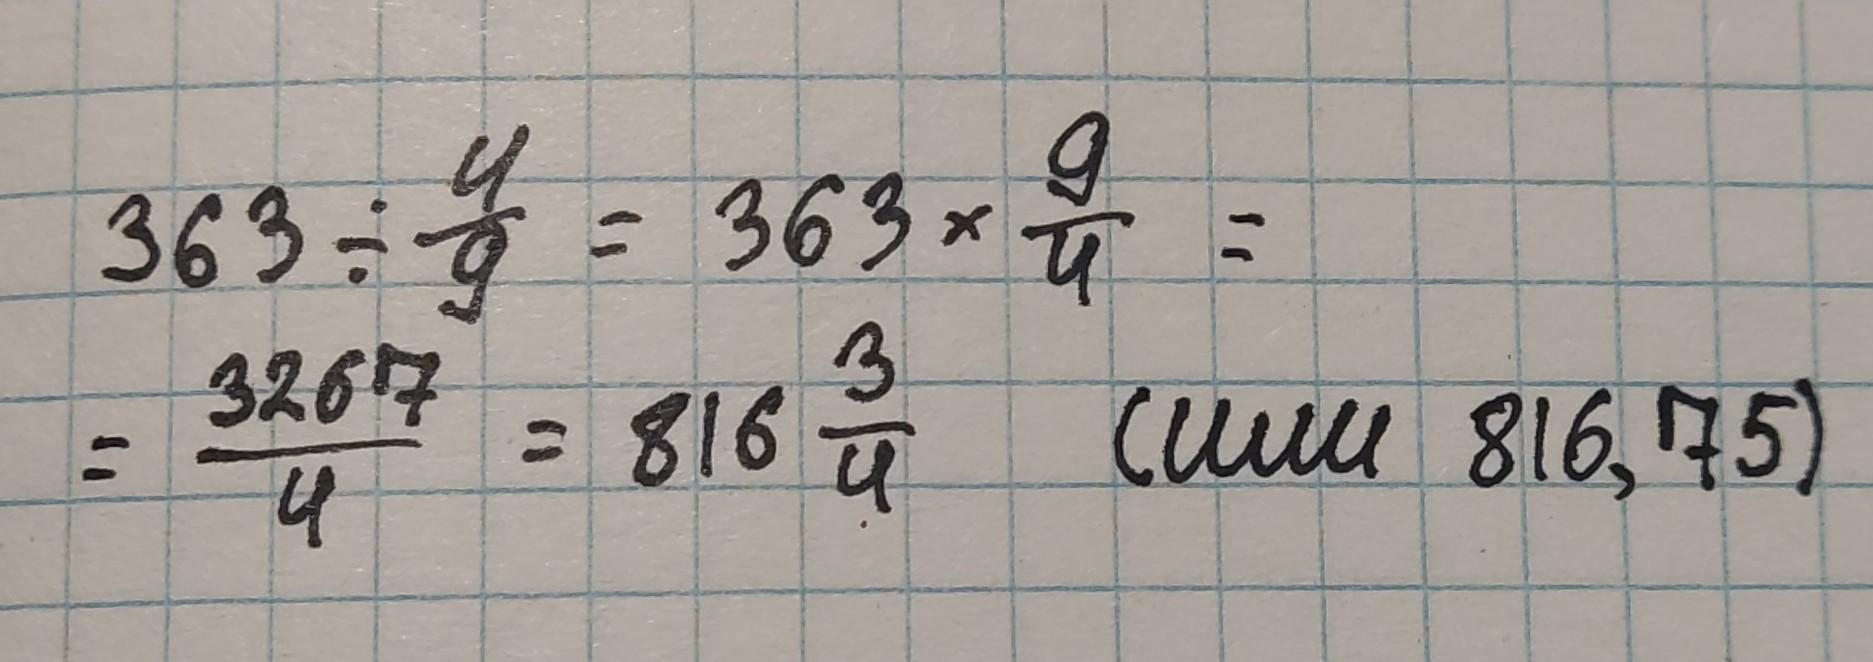 363 ÷ 4/9 = 363 × 9/4 =
= 3267/4 = 816 3/4 (или 816,75)